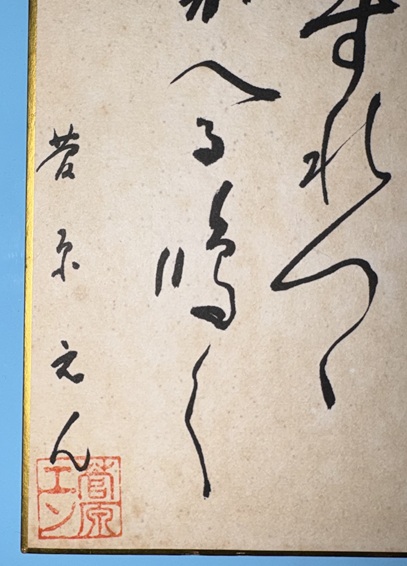 すれつゝ
へる鳴く
菅原えん
菅原
エン